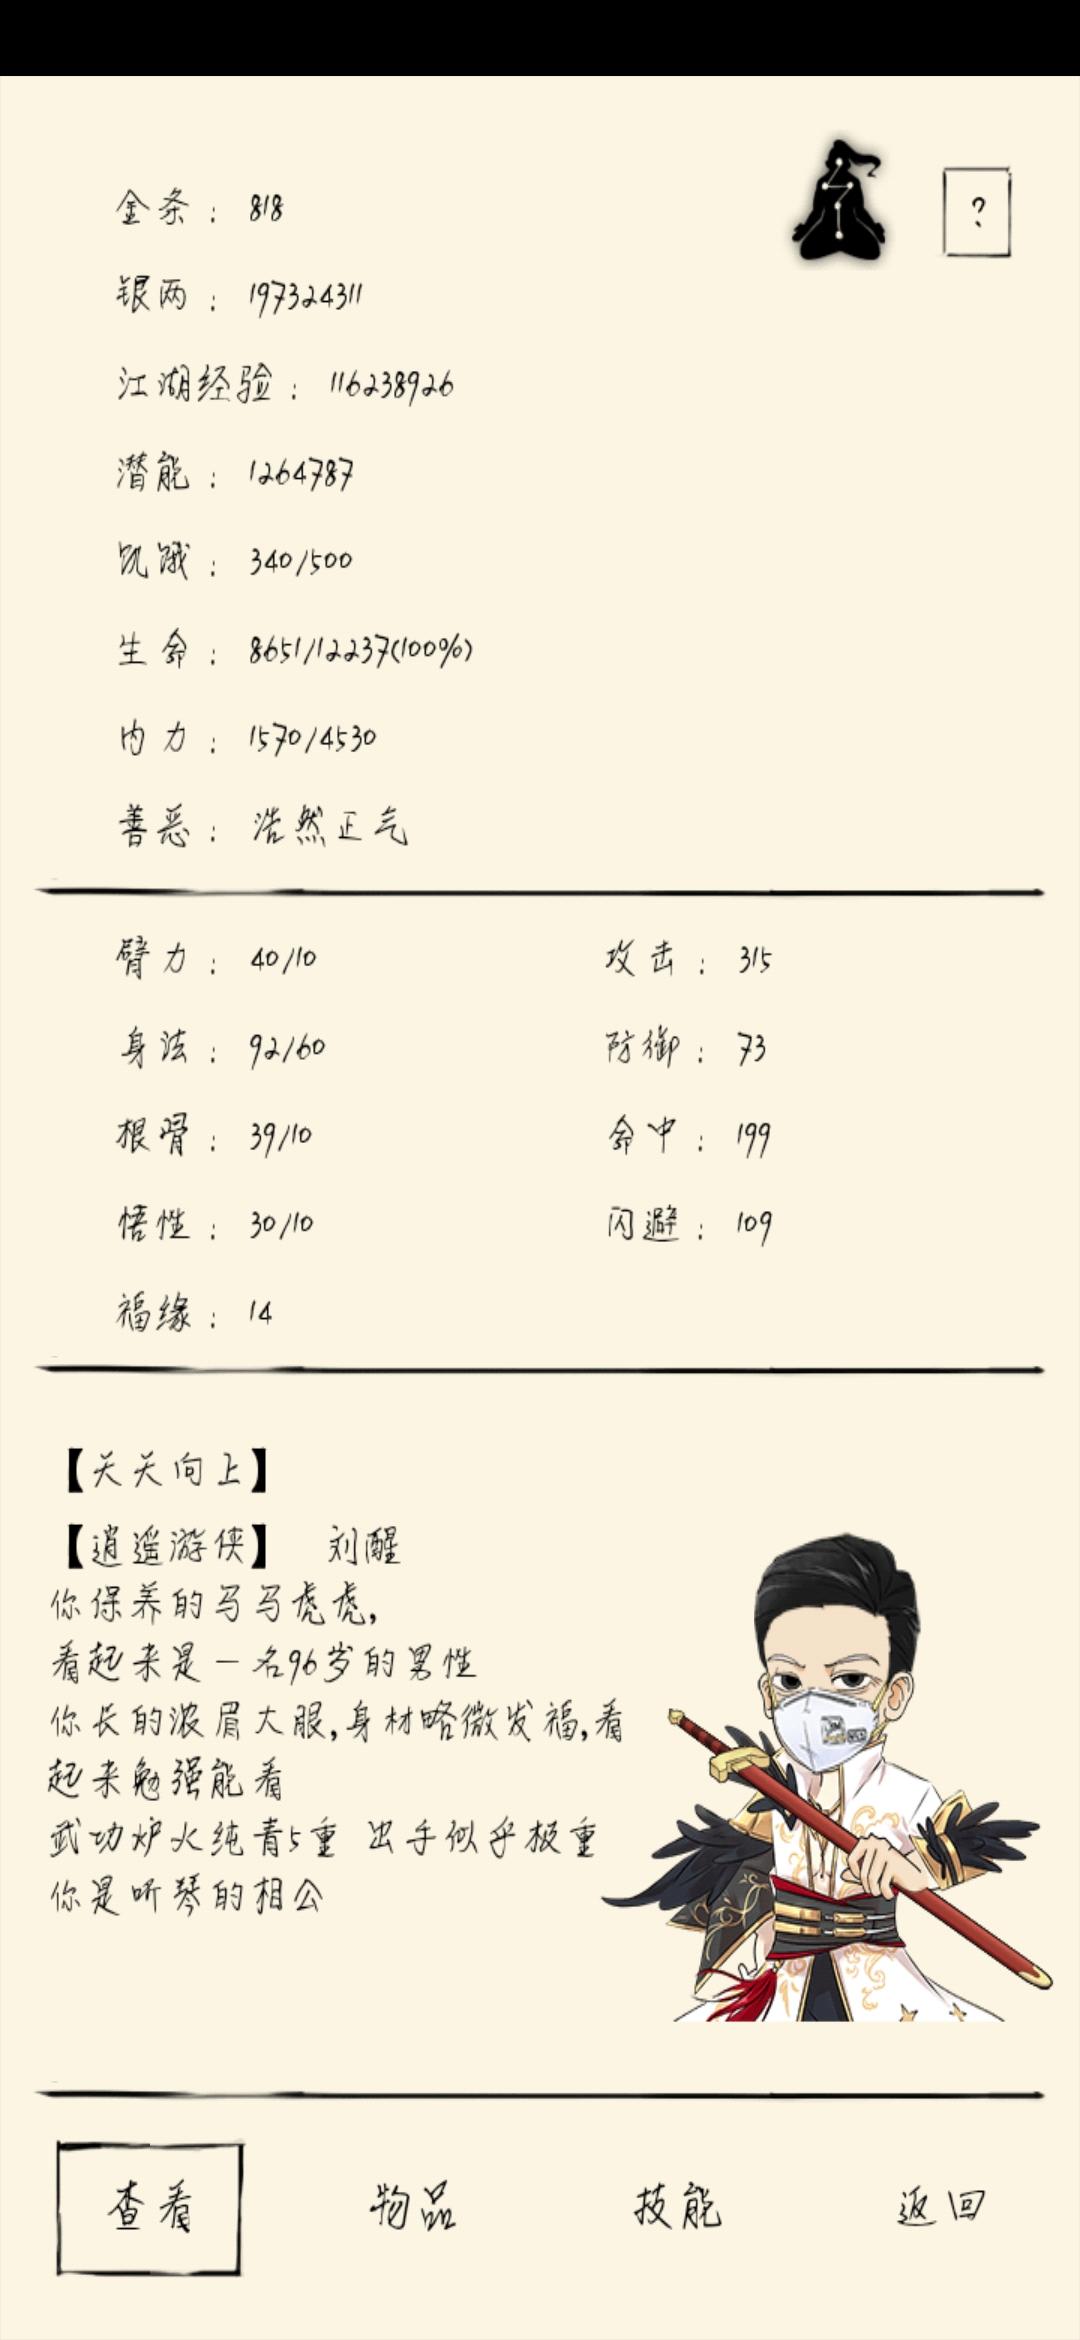 金条：818
?
银两：197324311
江湖经验：116238926
潜能：1264787
饥饿：340/500
生命：8651/12237(100%)
内力：1570/4530
善恶：浩然正气
臂力：40/10 攻击：315
身法：92/60 防御：73
根骨：39/10 命中：199
悟性：30/10 闪避：109
福缘：14
【天天向上】
【逍遥游侠】 刘醒
你保养的马马虎虎,
看起来是一名96岁的男性
你长的浓眉大眼,身材略微发福,看
起来勉强能看
武功炉火纯青5重 出手似乎极重
你是听琴的相公
查看 物品 技能 返回